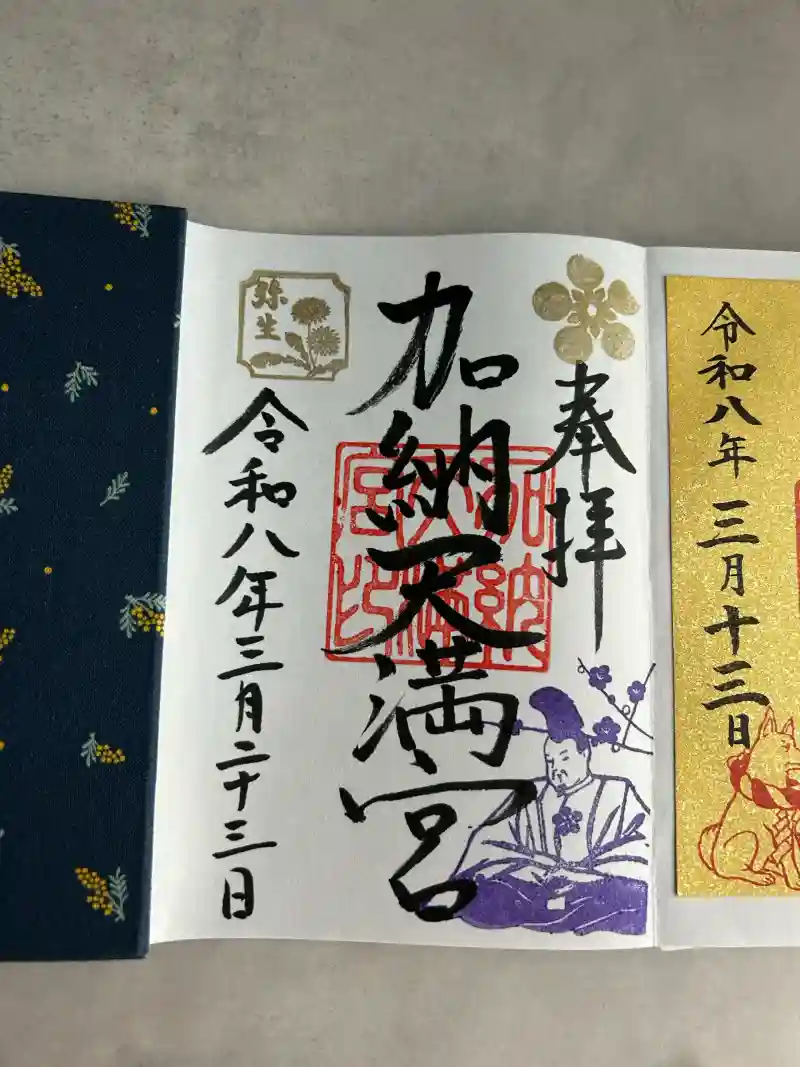 令和八年三月十三日
奉拝
加納天満宮
加納
天満
宮印
弥生
令和八年三月二十三日